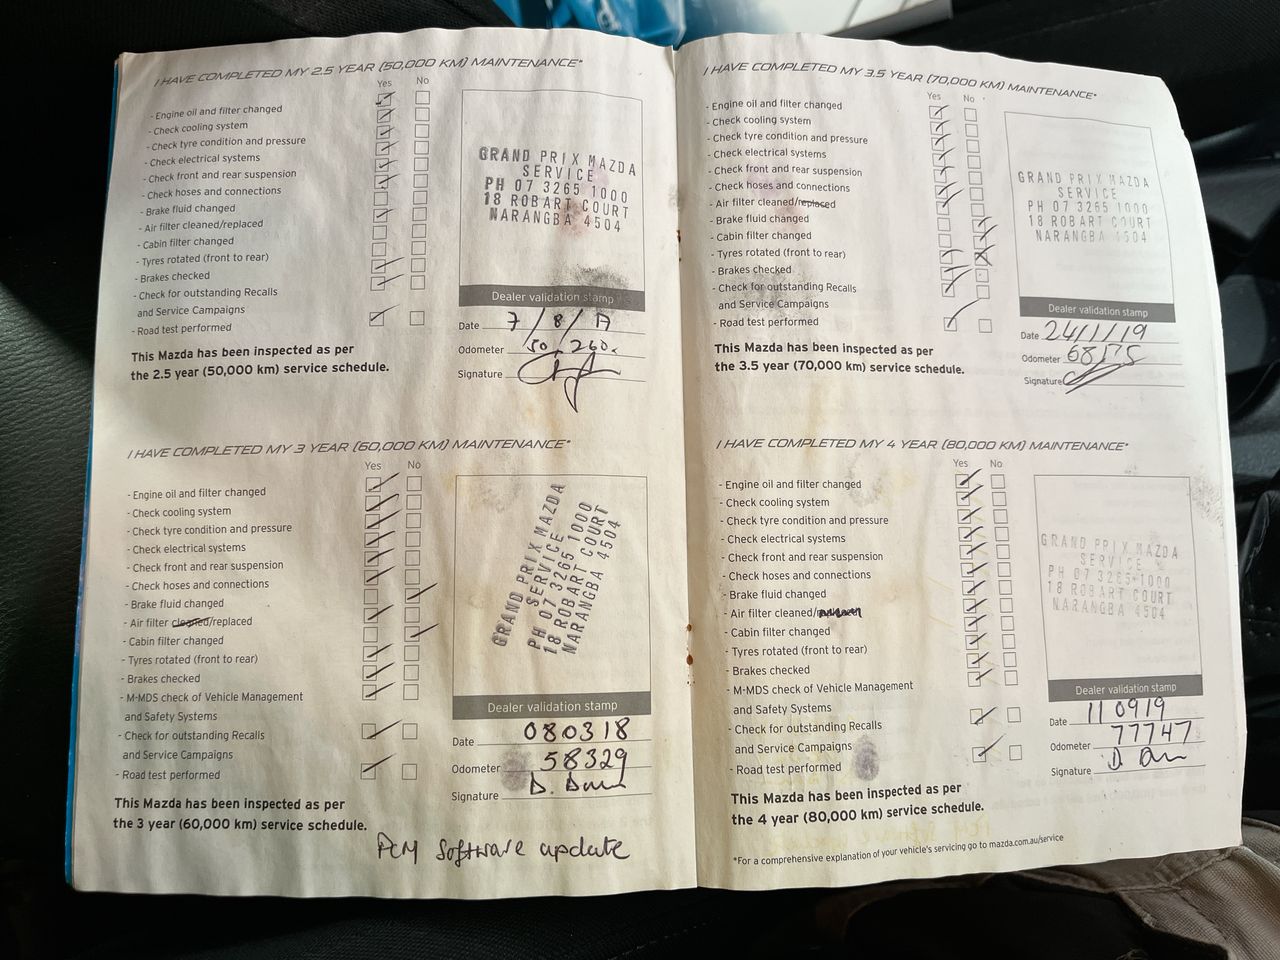 I HAVE COMPLETED MY 2.5 YEAR (50,000 KM) MAINTENANCE*
Yes No
- Engine oil and filter changed
- Check cooling system
- Check tyre condition and pressure
- Check electrical systems
- Check front and rear suspension
- Check hoses and connections
- Brake fluid changed
- Air filter cleaned/replaced
- Cabin filter changed
- Tyres rotated (front to rear)
- Brakes checked
- Check for outstanding Recalls
and Service Campaigns
- Road test performed
This Mazda has been inspected as per
the 2.5 year (50,000 km) service schedule.
GRAND PRIX MAZDA
SERVICE
PH 07 3265 1000
18 ROBART COURT
NARANGBA 4504
Dealer validation stamp
Date 7/8/17
Odometer 50,260.
Signature
I HAVE COMPLETED MY 3 YEAR (60,000 KM) MAINTENANCE*
Yes No
- Engine oil and filter changed
- Check cooling system
- Check tyre condition and pressure
- Check electrical systems
- Check front and rear suspension
- Check hoses and connections
- Brake fluid changed
- Air filter cleaned/replaced
- Cabin filter changed
- Tyres rotated (front to rear)
- Brakes checked
- M-MDS check of Vehicle Management
and Safety Systems
- Check for outstanding Recalls
and Service Campaigns
- Road test performed
This Mazda has been inspected as per
the 3 year (60,000 km) service schedule.
GRAND PRIX MAZDA
SERVICE
PH 07 3265 1000
18 ROBART COURT
NARANGBA 4504
Dealer validation stamp
Date 080318
Odometer 58329
Signature D.
PCM Software update
I HAVE COMPLETED MY 3.5 YEAR (70,000 KM) MAINTENANCE*
Yes No
- Engine oil and filter changed
- Check cooling system
- Check tyre condition and pressure
- Check electrical systems
- Check front and rear suspension
- Check hoses and connections
- Air filter cleaned/replaced
- Brake fluid changed
- Cabin filter changed
- Tyres rotated (front to rear)
- Brakes checked
- Check for outstanding Recalls
and Service Campaigns
- Road test performed
This Mazda has been inspected as per
the 3.5 year (70,000 km) service schedule.
GRAND PRIX MAZDA
SERVICE
PH 07 3265 1000
18 ROBART COURT
NARANGBA 4504
Dealer validation stamp
Date 24/1/19
Odometer
Signature
I HAVE COMPLETED MY 4 YEAR (80,000 KM) MAINTENANCE*
Yes No
- Engine oil and filter changed
- Check cooling system
- Check tyre condition and pressure
- Check electrical systems
- Check front and rear suspension
- Check hoses and connections
- Brake fluid changed
- Air filter cleaned/
- Cabin filter changed
- Tyres rotated (front to rear)
- Brakes checked
- M-MDS check of Vehicle Management
and Safety Systems
- Check for outstanding Recalls
and Service Campaigns
- Road test performed
This Mazda has been inspected as per
the 4 year (80,000 km) service schedule.
GRAND PRIX MAZDA
SERVICE
PH 07 3265 1000
18 ROBART COURT
NARANGBA 4504
Dealer validation stamp
Date 110919
Odometer 77747
Signature D.
*For a comprehensive explanation of your vehicle's servicing go to mazda.com.au/service